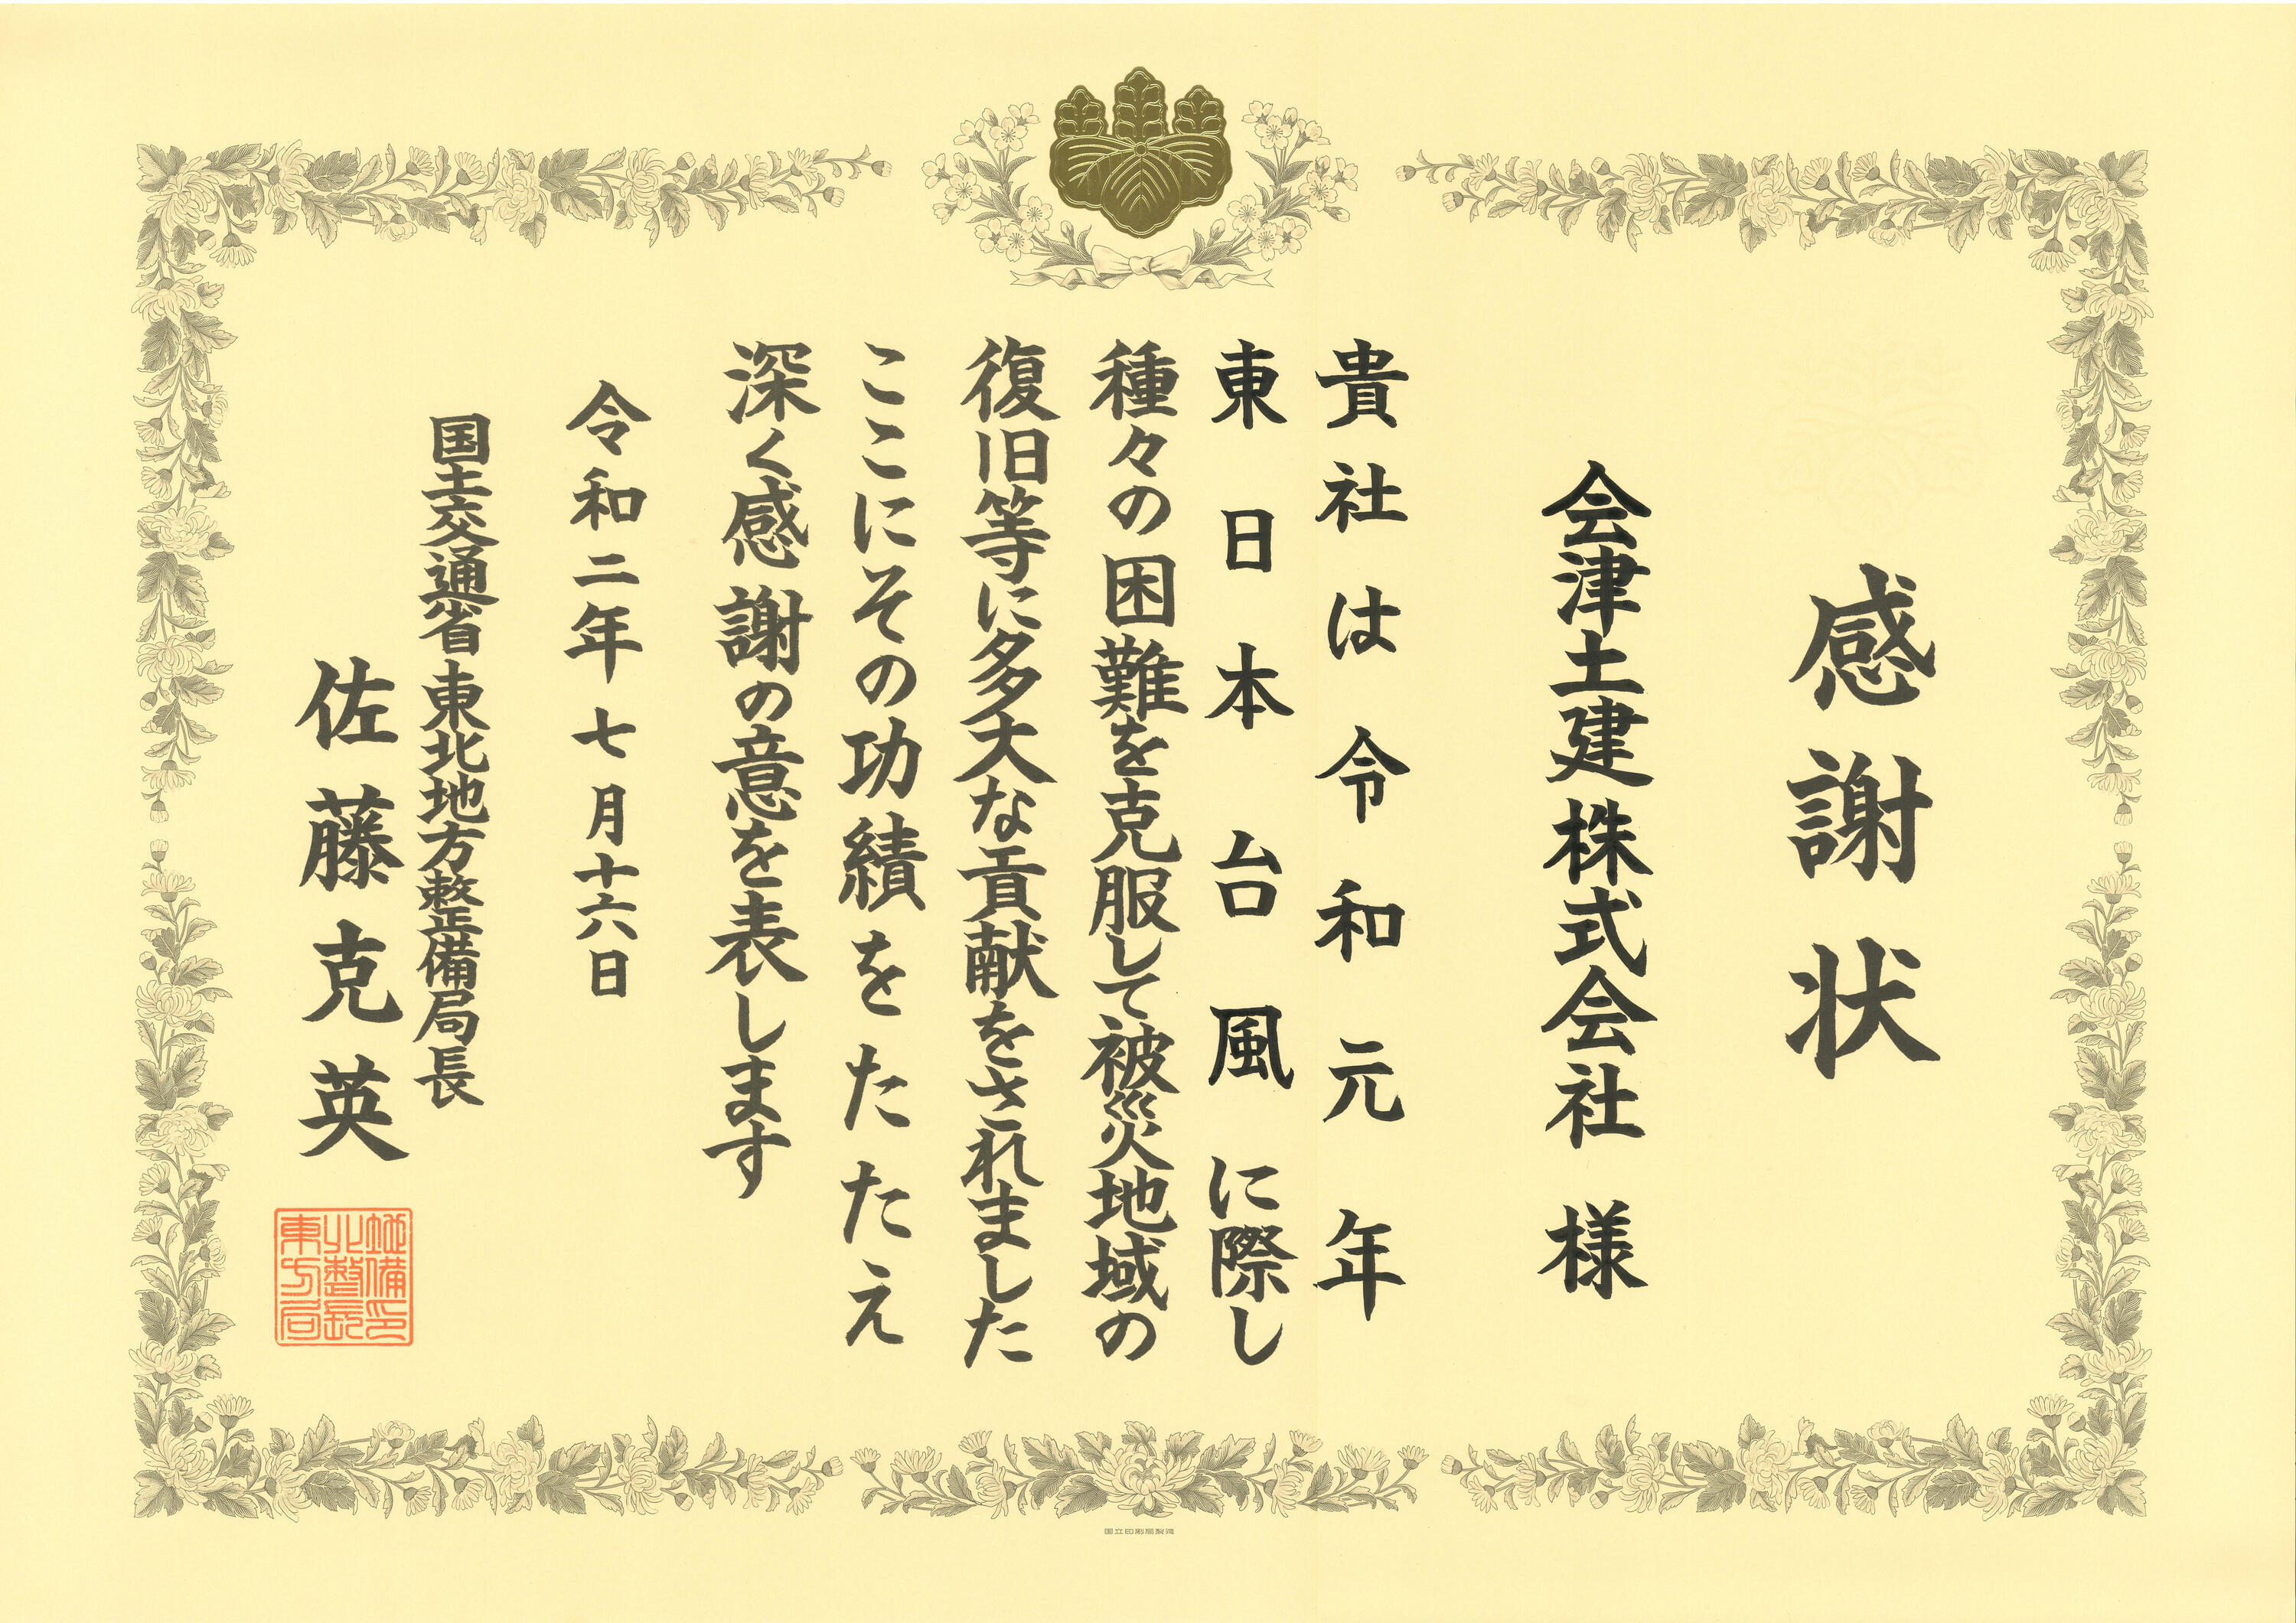 感謝状
会津土建株式会社 様
貴社は令和元年
東日本台風に際し
種々の困難を克服して被災地域の
復旧等に多大な貢献をされました
ここにその功績をたたえ
深く感謝の意を表します
令和二年七月十六日
国土交通省東北地方整備局長
佐藤克英
東北地方整備局長印
国立印刷局製造